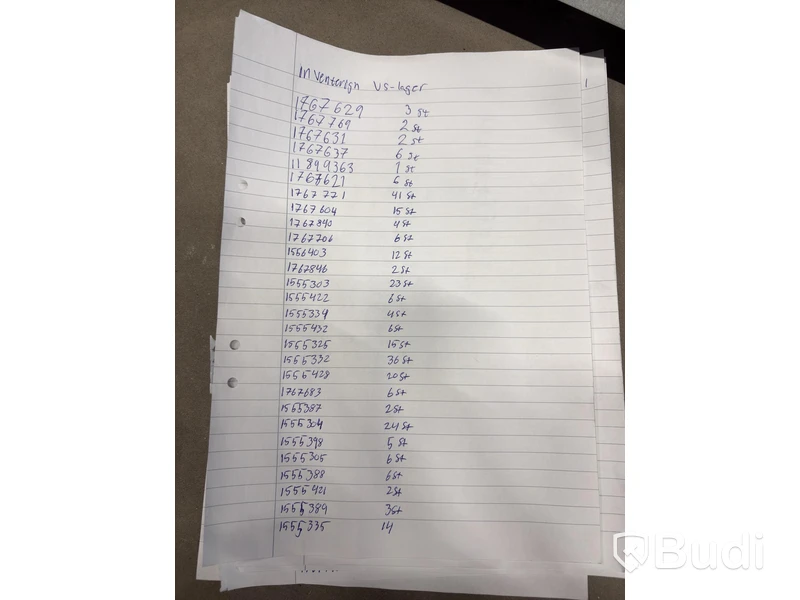 Inventerign VS-lager
1767629 3 st
1767769 2 st
1767631 2 st
1767637 6 st
11899363 1 st
1767621 6 st
1767771 41 st
1767604 15 st
1767840 4 st
1767706 6 st
1556403 12 st
1767846 2 st
1555303 23 st
1555422 6 st
1555334 4 st
1555432 6 st
1555325 15 st
1555332 36 st
1555428 20 st
1767683 6 st
1555387 2 st
1555304 24 st
1555398 5 st
1555305 6 st
1555388 6 st
1555421 2 st
1555389 3 st
1555335 14
Budi